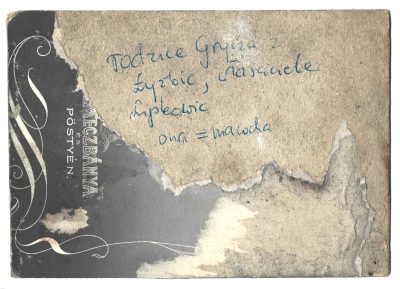 rodzice Gryzia z
Żyrbic, właściciele
Lipkowic
ona = macocha
MECZBÁNYA
ÉS
PÖSTYÉN.